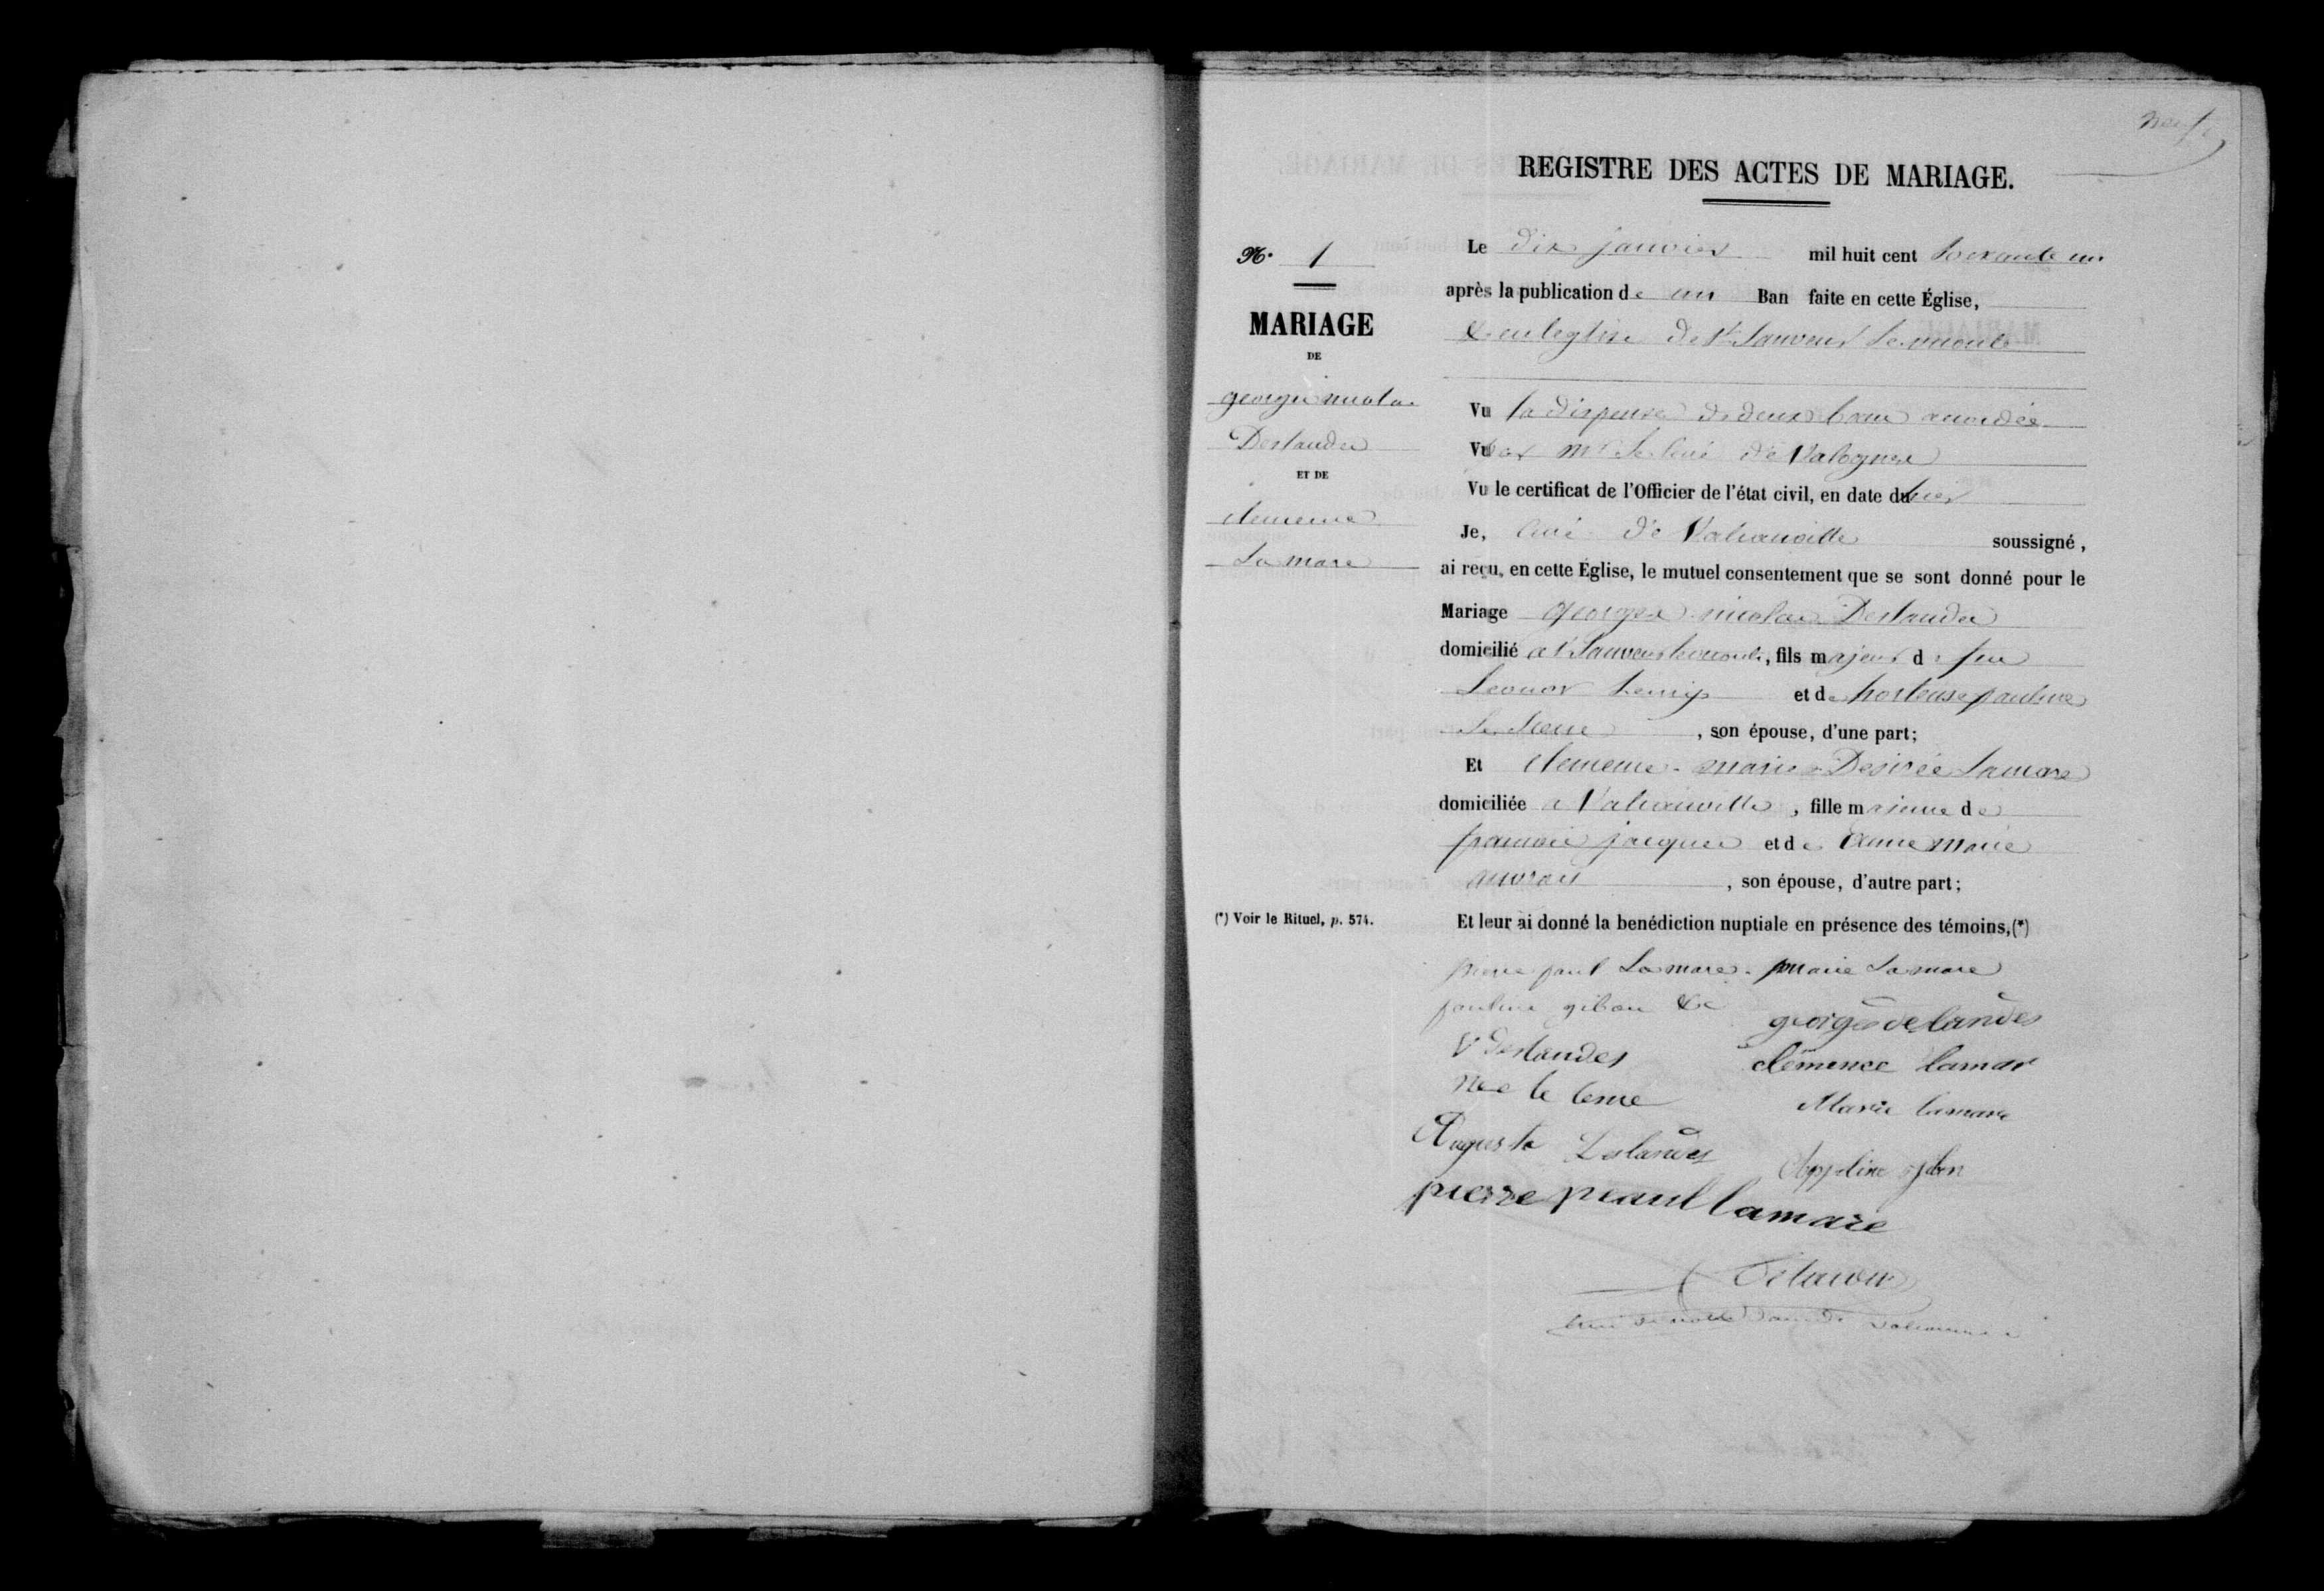 neuf
REGISTRE DES ACTES DE MARIAGE.
N.° 1
MARIAGE
DE
georges nicolas
Deslandes
ET DE
clemence
La mare
Le dix janvier mil huit cent soixante un
après la publication de un Ban faite en cette Église,
& en leglise de St Sauveur
Vu la dispense de deux bans accordée
Vu par Mr le curé de Valognes
Vu le certificat de l'Officier de l'état civil, en date du hier
Je, curé de soussigné,
ai reçu, en cette Église, le mutuel consentement que se sont donné pour le
Mariage georges nicolas Deslandes
domicilié a St Sauveur, fils majeur de feu
Leonor et de hortense pauline
, son épouse, d'une part;
Et clemence marie Desirée Lamare
domiciliée a, fille majeure de
francois jacques et de Anne Marie
auvrai, son épouse, d'autre part;
(*) Voir le Rituel, p. 574.
Et leur ai donné la benédiction nuptiale en présence des témoins,(*)
pierre paul Lamare. marie Lamare
pauline gibon &c
georges delandes
V Deslandes
clémence lamar
née le
Marie lamare
Auguste Deslandes
Appoline gibon
pierre peaul lamare